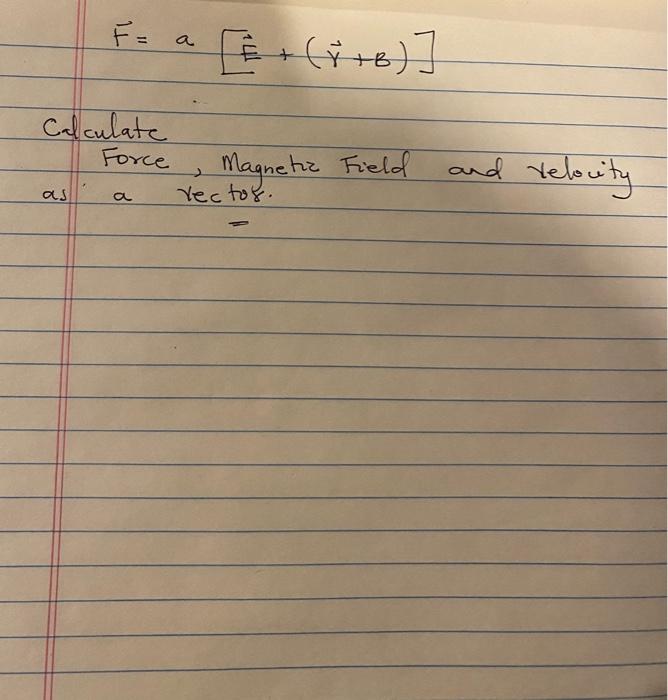 F⃗ = a [E⃗ + (v⃗ + B)]
Calculate
Force, Magnetic Field and velocity
as a vector.